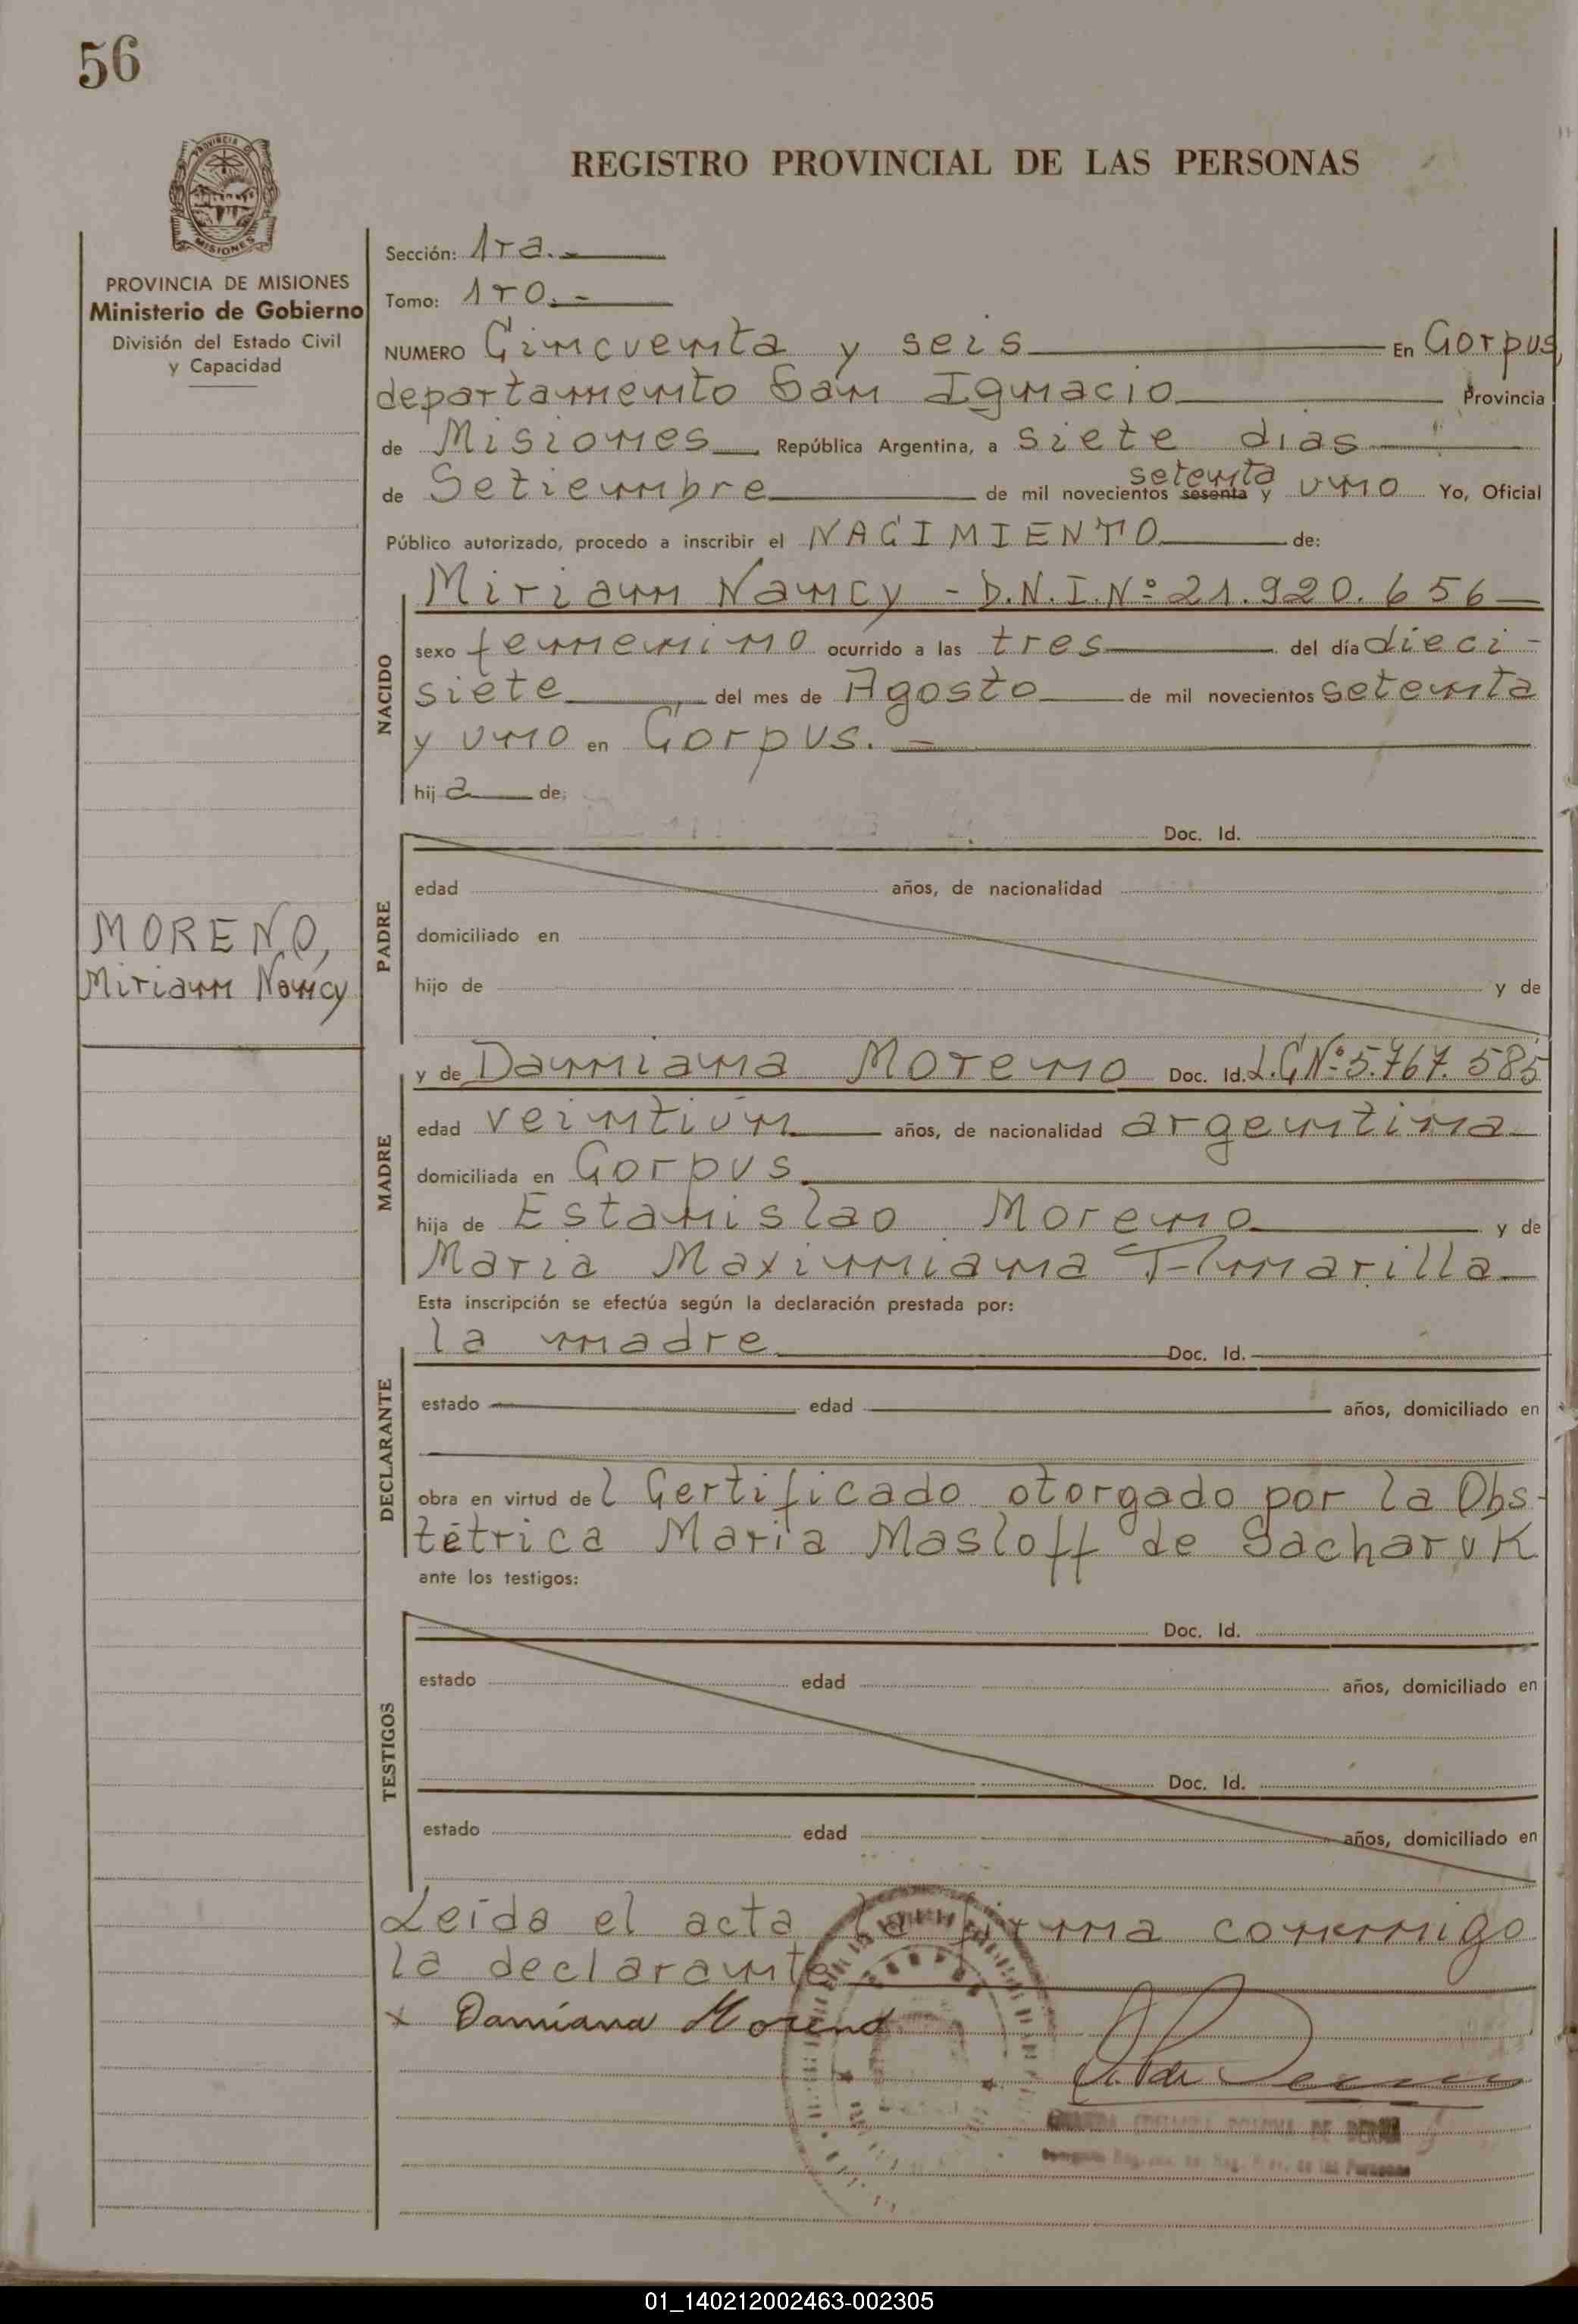 56
PROVINCIA DE MISIONES
Ministerio de Gobierno
División del Estado Civil
y Capacidad
REGISTRO PROVINCIAL DE LAS PERSONAS
Sección: 1ra.-
Tomo: 1ro.-
NUMERO Cincuenta y seis En Corpus,
departamento San Ignacio Provincia
de Misiones República Argentina, a siete dias
de Setiembre de mil novecientos sesenta setenta y uno Yo, Oficial
Público autorizado, procedo a inscribir el NACIMIENTO de:
NACIDO
Miriam Nancy - D.N.I.Nº 21.920.656
sexo femenino ocurrido a las tres del día dieci-
siete del mes de Agosto de mil novecientos setenta
y uno en Corpus.-
hija de:
PADRE
Doc. Id.
edad años, de nacionalidad
domiciliado en
hijo de y de
MORENO,
Miriam Nancy
MADRE
y de Damiana Moreno Doc. Id. L.C Nº 5.767.585
edad veintiún años, de nacionalidad argentina
domiciliada en Corpus
hija de Estanislao Moreno y de
Maria Maximiana
Esta inscripción se efectúa según la declaración prestada por:
DECLARANTE
la madre Doc. Id.
estado edad años, domiciliado en
obra en virtud del Certificado otorgado por la Obs-
tétrica Maria Masloff de Sacharuk
ante los testigos:
TESTIGOS
Doc. Id.
estado edad años, domiciliado en
Doc. Id.
estado edad años, domiciliado en
Leída el acta la firma conmigo
la declarante
x Damiana Moreno
DE
de las Personas
01_140212002463-002305